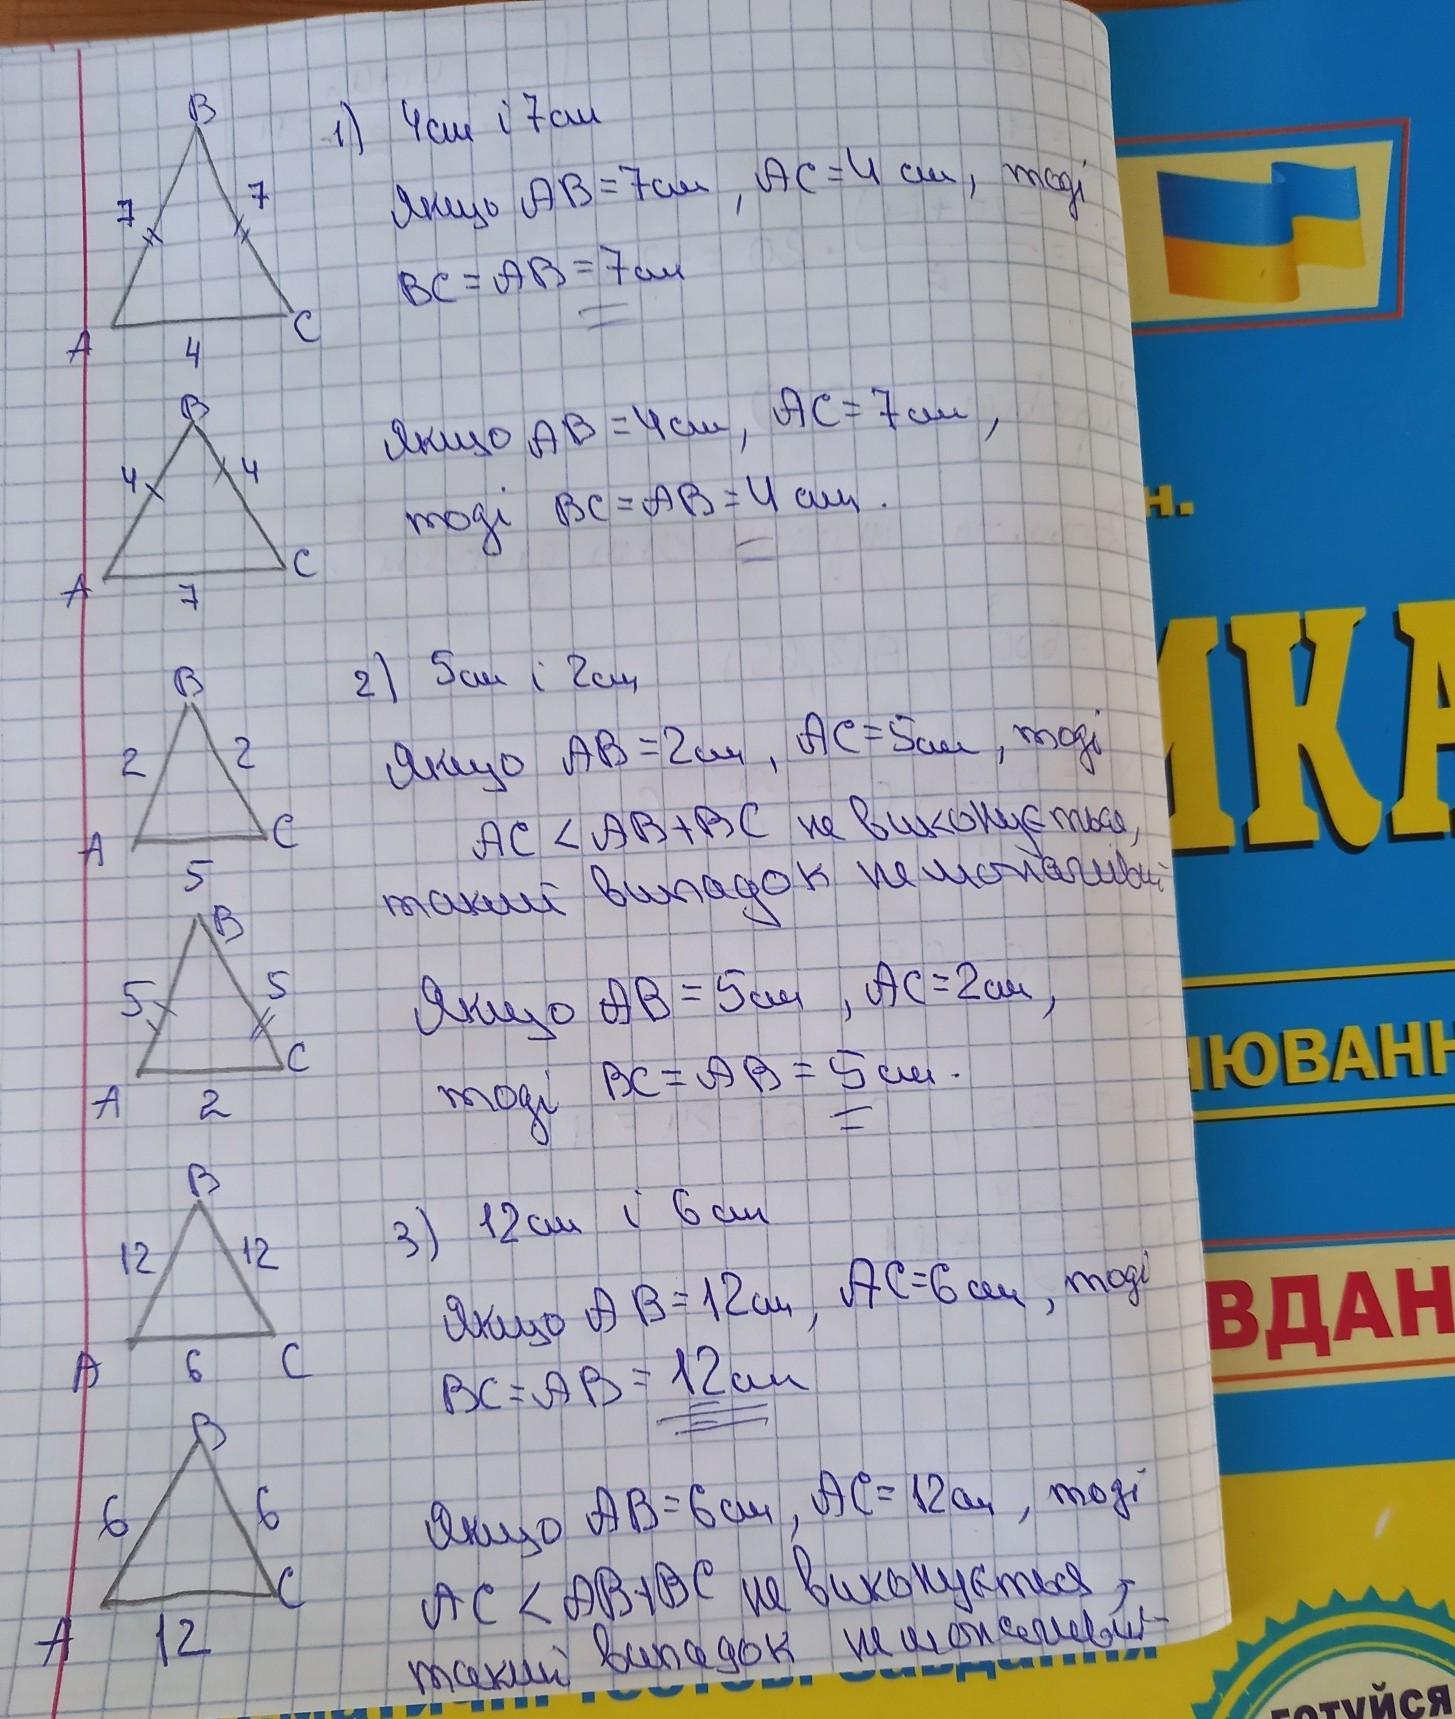 B
7
7
A
4
C
1) 4см і 7см
Якщо AB=7см, AC=4 см, тоді
BC=AB=7см
B
4
4
A
7
C
Якщо AB=4см, AC=7см,
тоді BC=AB=4 см.
B
2
2
A
5
C
2) 5см і 2см
Якщо AB=2см, AC=5см, тоді
AC<AB+BC не виконується,
такий випадок неможливий
B
5
5
A
2
C
Якщо AB=5см, AC=2см,
тоді BC=AB=5см.
B
12
12
A
6
C
3) 12см і 6см
Якщо AB=12см, AC=6см, тоді
BC=AB=12см
B
6
6
A
12
C
Якщо AB=6см, AC=12см, тоді
AC<AB+BC не виконується,
такий випадок неможливий
н.
ИКА
ЮВАНН
ВДАН
ГОТУЙСЯ